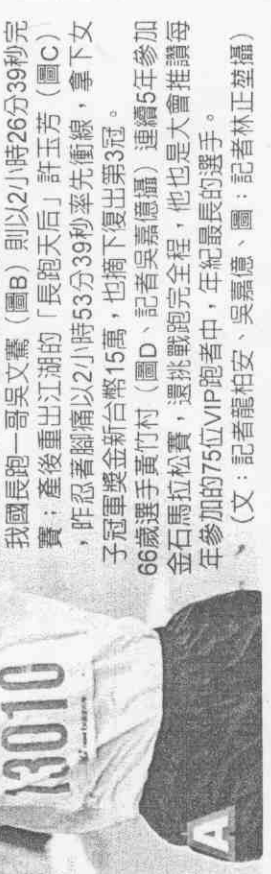 我國長跑一哥吳文騫（圖B）則以2小時26分39秒完
賽；產後重出江湖的「長跑天后」許玉芳（圖C）
，昨忍者腳痛以2小時53分39秒率先衝線，拿下女
子冠軍獎金新台幣15萬，也摘下復出第3冠。
66歲選手黃竹村（圖D、記者吳嘉億攝）連續5年參加
金石馬拉松賽，還挑戰跑完全程，他也是大會推讚每
年參加的75位VIP跑者中，年紀最長的選手。
（文：記者龍柏安、吳嘉億、圖：記者林正堃攝）
A3010
A